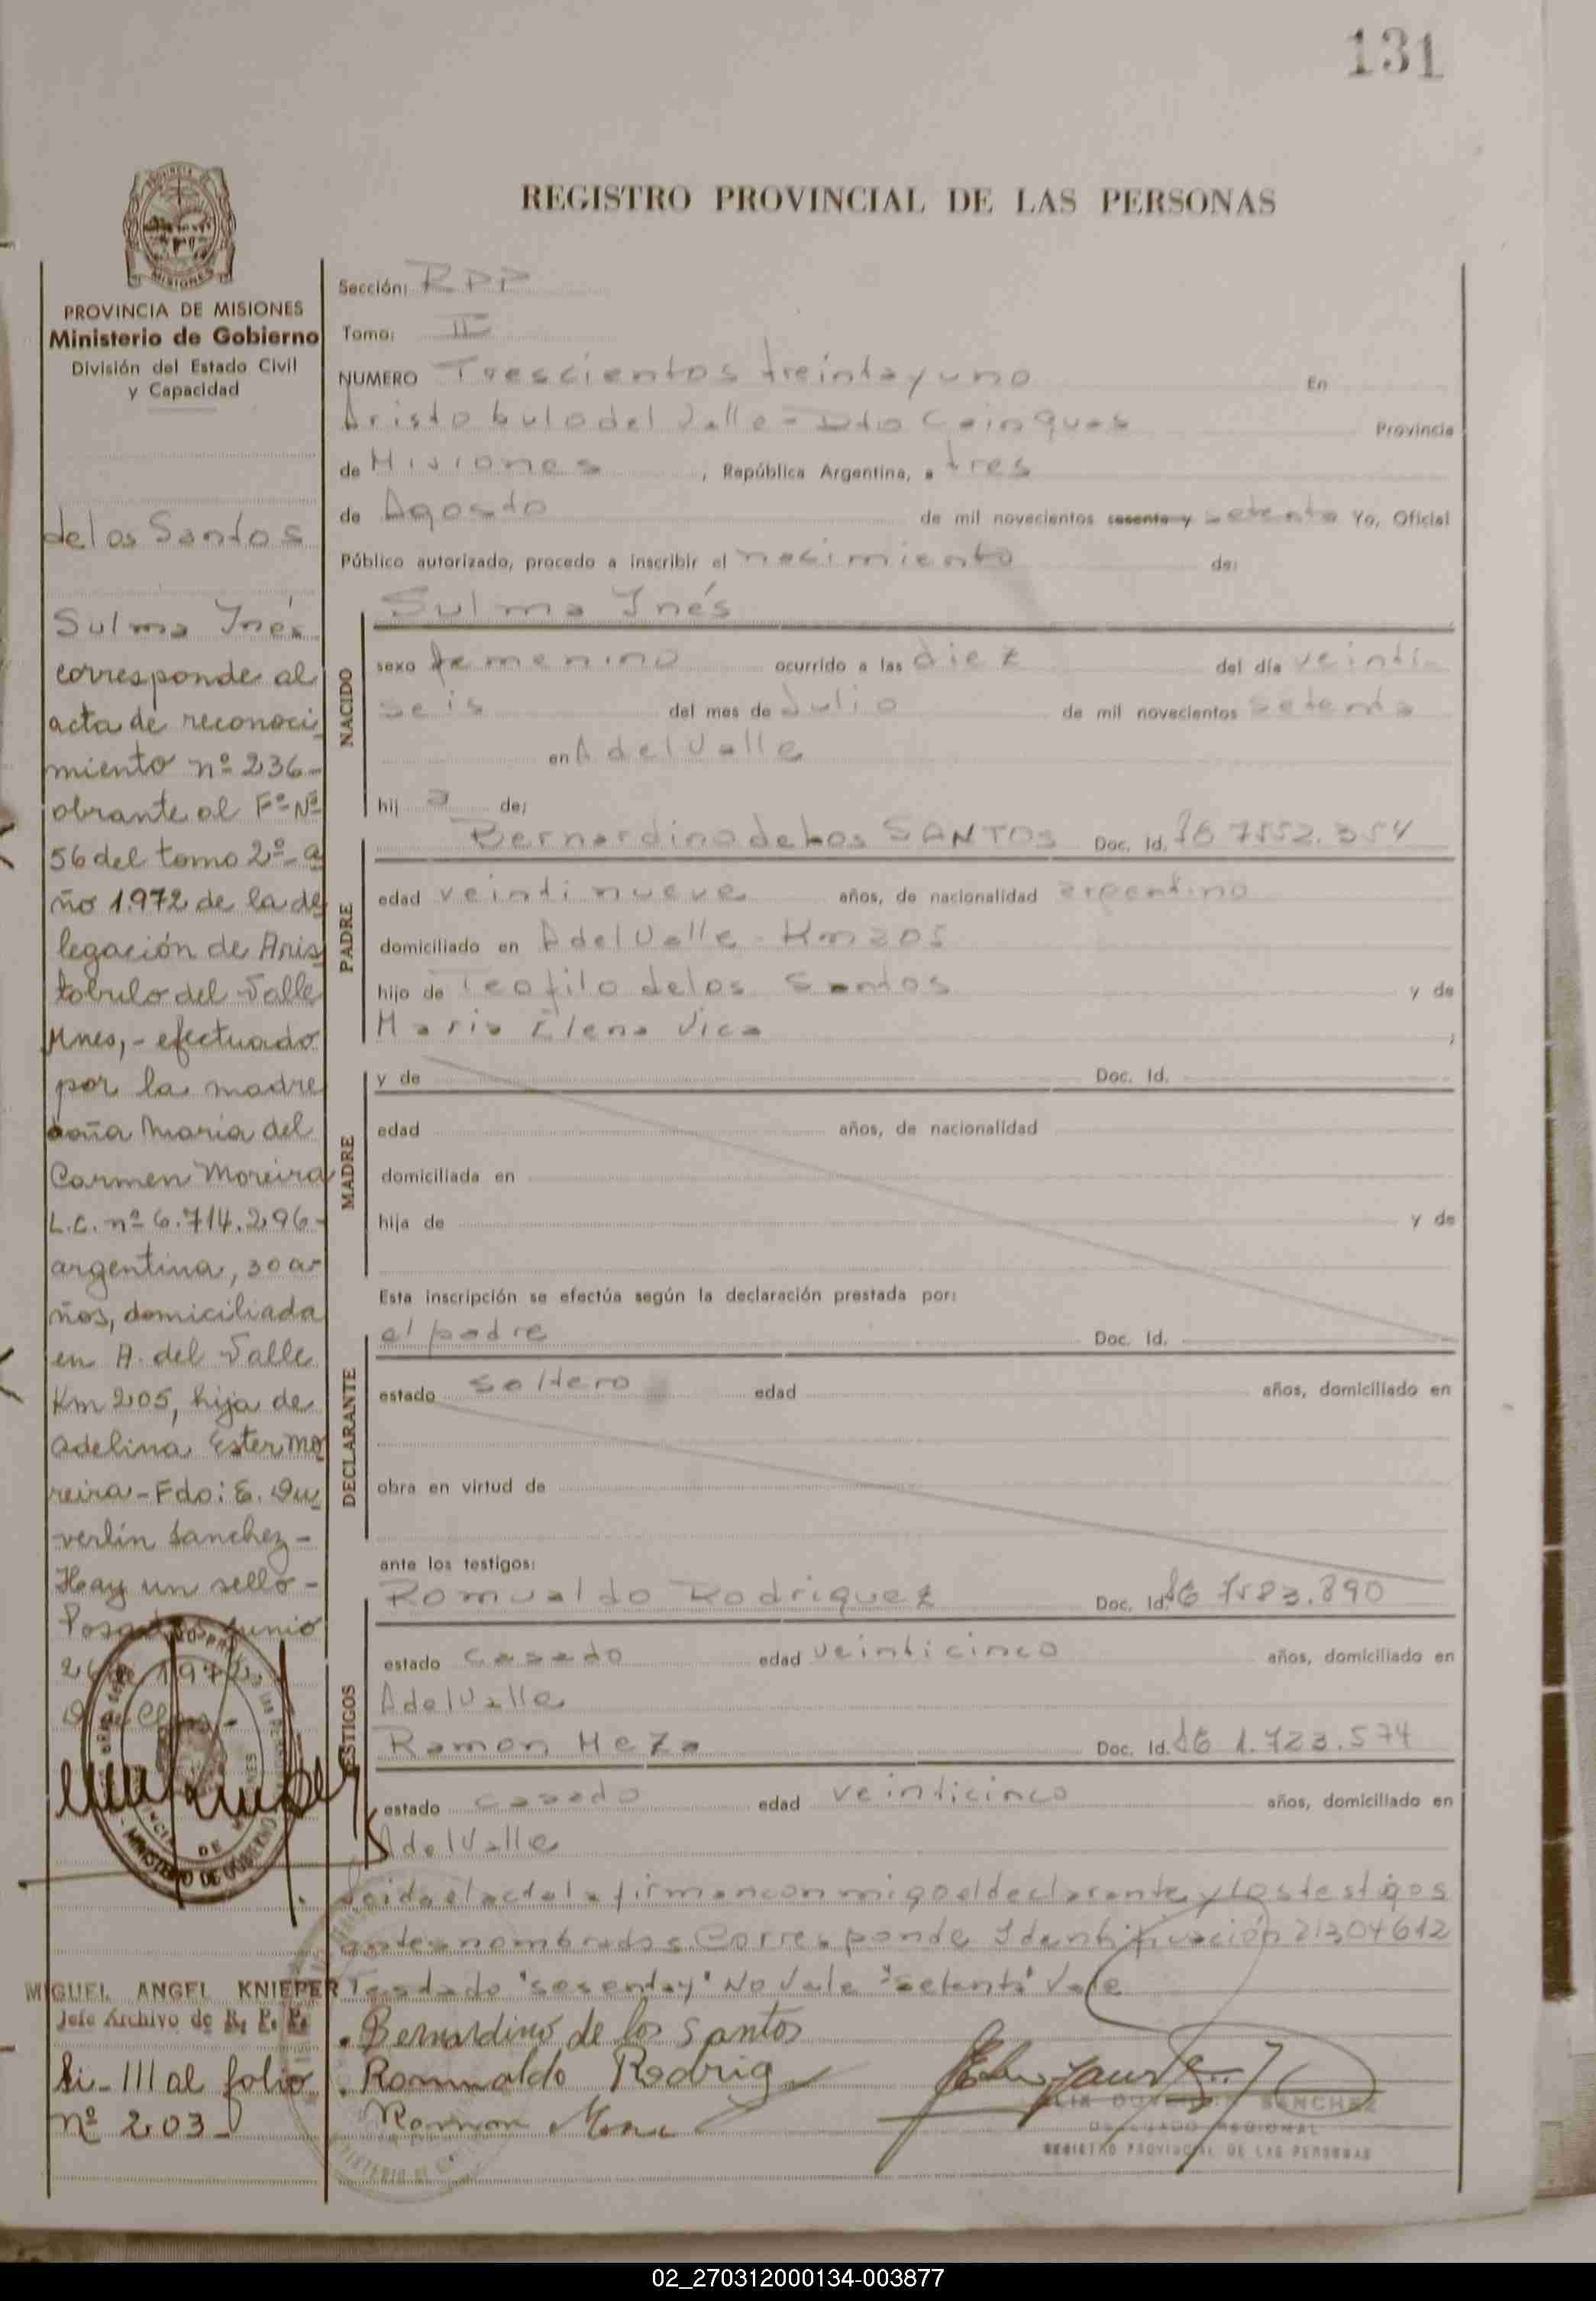 131
REGISTRO PROVINCIAL DE LAS PERSONAS
MISIONES
PROVINCIA DE MISIONES
Ministerio de Gobierno
División del Estado Civil
y Capacidad
de los Santos
Sulma Inés
corresponde al
acta de reconoci
miento nº 236-
obrante al Fº Nº
56 del tomo 2º- a
ño 1.972 de la de
legación de Aris
tobulo del Valle
Mnes,- efectuado
por la madre
doña Maria del
Carmen Moreira
L.C. nº 6.714.296-
argentina, 30 a-
ños, domiciliada
en A. del Valle
Km 205, hija de
Adelina Ester Mo
reira- Fdo: E. Du
verlin Sanchez-
Hay un sello-
Posadas, Junio
1972
MINISTERIO DE GOBIERNO
MIGUEL ANGEL KNIEPER
Jefe Archivo de R. P. P.
Li- III al folio
nº 203-
Sección: RPP
Tomo: II
NUMERO Trescientos treinta y uno En
Aristobulo del Valle = Dto Cainguas Provincia
de Misiones, República Argentina, a tres
de Agosto de mil novecientos sesenta y setenta Yo, Oficial
Público autorizado, procedo a inscribir el nacimiento de:
Sulma Inés
NACIDO
sexo femenino ocurrido a las diez del día veinti-
seis del mes de Julio de mil novecientos setenta
en A del Valle
hij a de:
PADRE
Bernardino de Los SANTOS Doc. Id. 7552.354
edad veintinueve años, de nacionalidad argentino
domiciliado en A del Valle - Km 205
hijo de Teofilo de los Santos y de
Maria Elena Vica
MADRE
y de Doc. Id.
edad años, de nacionalidad
domiciliada en
hija de y de
Esta inscripción se efectúa según la declaración prestada por:
DECLARANTE
el padre Doc. Id.
estado soltero edad años, domiciliado en
obra en virtud de
ante los testigos:
TESTIGOS
Romualdo Rodriguez Doc. Id. 7583.890
estado casado edad veinticinco años, domiciliado en
A del Valle
Ramon Meza Doc. Id. 1.723.574
estado casado edad veinticinco años, domiciliado en
A del Valle
Leida el acta la firman conmigo el declarante y los testigos
antes nombrados. Corresponde Identificación 21304612
Testado "sesenta y" No Vale "setenta" Vale
Bernardino de los Santos
Romualdo Rodrig
Ramon
SANCHEZ
DELEGADO REGIONAL
REGISTRO PROVINCIAL DE LAS PERSONAS
02_270312000134-003877